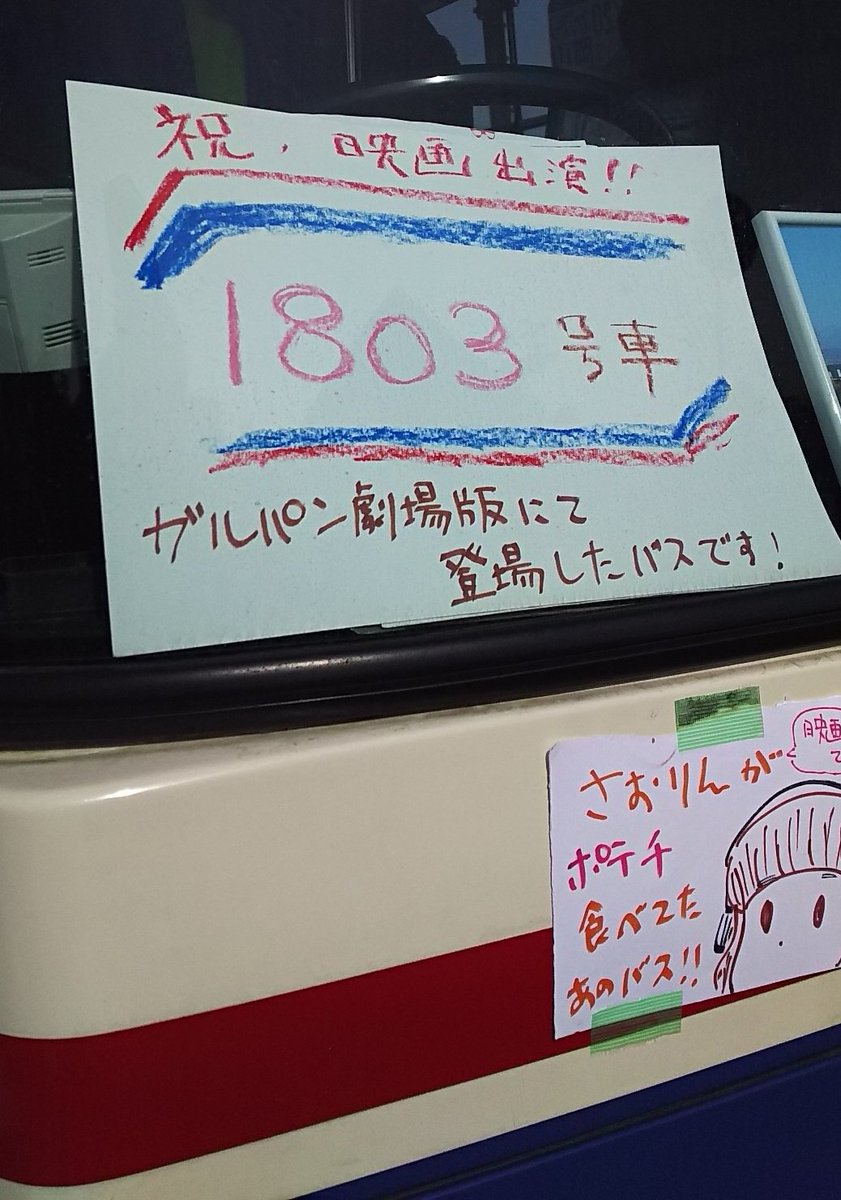 祝、映画出演!!
1803号車
ガルパン劇場版にて
登場したバスです!
さおりんが
ポテチ
食べてた
あのバス!!
映画